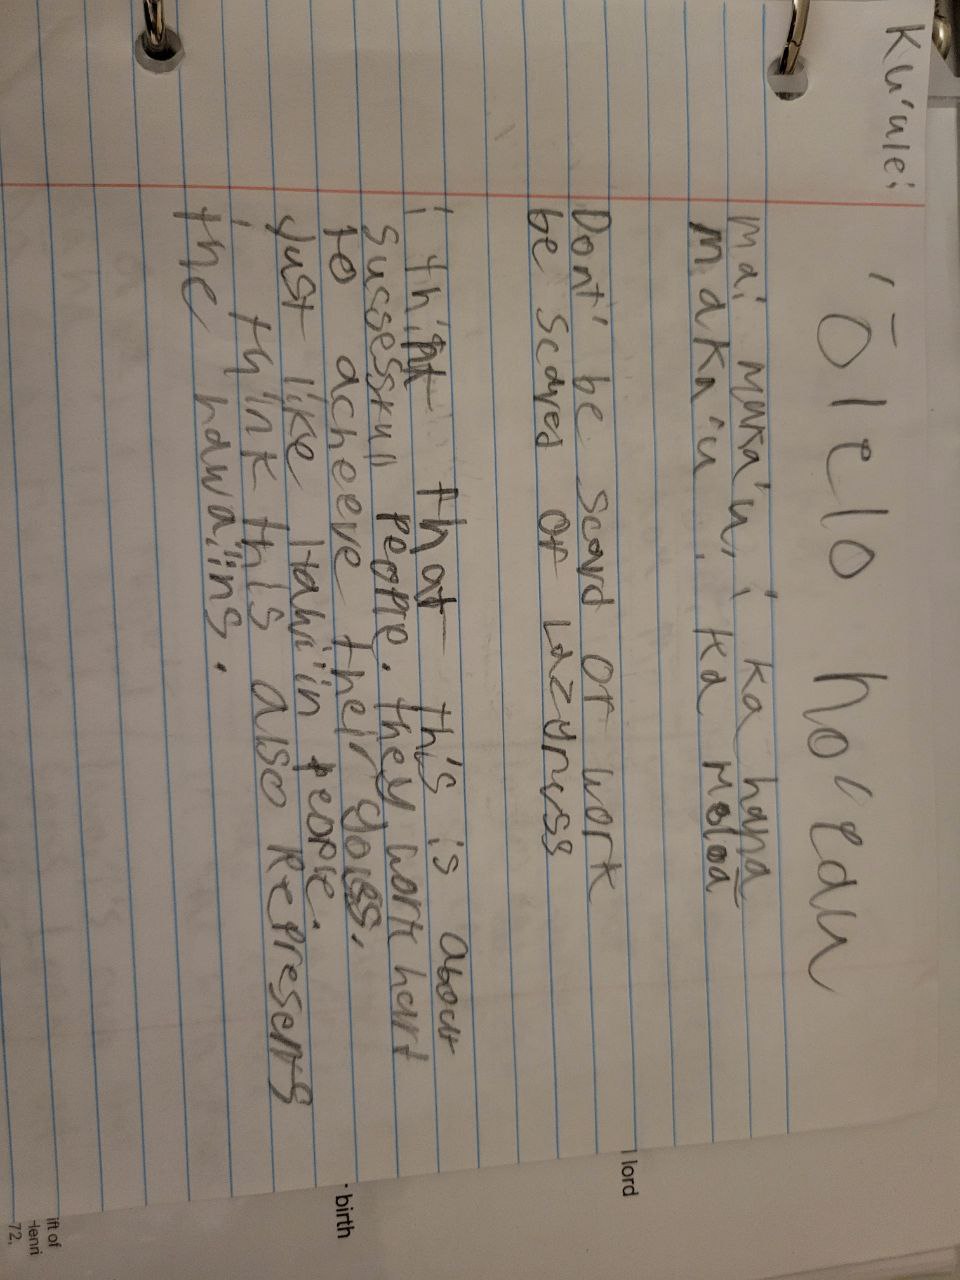 Ku'ulei
'ōlelo no'eau
mai maka'u, i ka hana
makn'u. ka moloa
Dont' be scard or work
be scared of Lazyness
i think that this is about
sussessful people. they work hart
to acheeve their goless.
Just like Hawi'in people.
i think this also Represents
the hawaiins.
lord
birth
ift of
Henri
72,